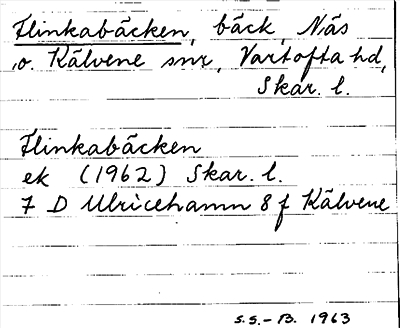 Flinkabäcken, bäck, Näs
o. Kälvene snr, Vartofta hd,
Skar. l.
Flinkabäcken
ek (1962) Skar. l.
7 D Ulricehamn 8 f Kälvene
S.S.-B. 1963